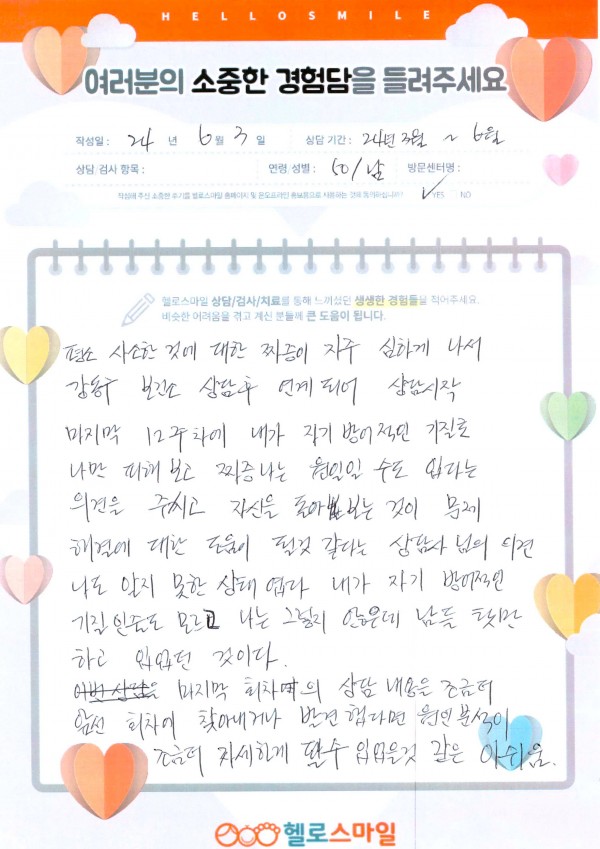 HELLOSMILE
여러분의 소중한 경험담을 들려주세요
작성일 : 24 년 6 월 3 일 상담 기간 : 24년 3월 ~ 6월
상담/검사 항목 : 연령/성별 : 50/남 방문센터명 :
작성해 주신 소중한 후기를 헬로스마일 홈페이지 및 온오프라인 홍보용으로 사용하는 것에 동의하십니까? ✓ YES NO
헬로스마일 상담/검사/치료를 통해 느끼셨던 생생한 경험들을 적어주세요.
비슷한 어려움을 겪고 계신 분들께 큰 도움이 됩니다.
평소 사소한 것에 대한 짜증이 자주 심하게 나서
강동구 보건소 상담후 연계되어 상담시작
마지막 12주차에 내가 자기 방어적인 기질로
나만 피해보고 짜증나는 원일일 수도 있다는
의견을 주시고 자신을 돌아보는 것이 문제
해결에 대한 도움이 될것 같다는 상담사님의 의견
나도 알지 못한 상태였다 내가 자기 방어적인
기질인줄도 모르고 나는 그렇지 않은데 남들 탓만
하고 있었던 것이다.
이번 상담을 마지막 회차의 상담 내용을 조금더
앞선 회차에 찾아내거나 발견했다면 원인분석이
조금더 자세하게 될수 있었을것 같은 아쉬움.
헬로스마일